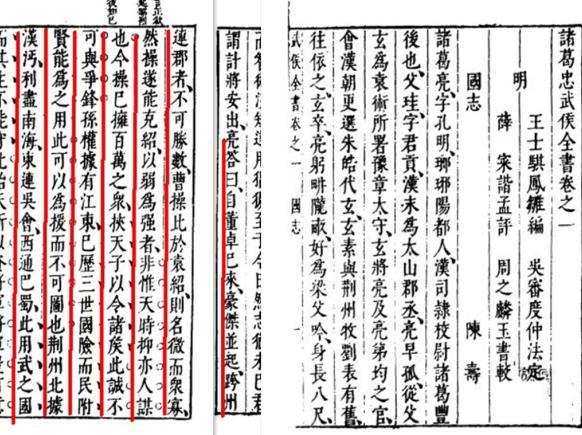 諸葛忠武侯全書卷之一
明
王士騏鳳雛編 吳審度仲法定
薛寀諧孟評 周之麟玉書較
國志 陳壽
諸葛亮字孔明、瑯琊陽都人、漢司隸校尉諸葛豐
後也、父珪字君貢、漢末為太山郡丞、亮早孤、從父
玄為袁術所署豫章太守、玄將亮及亮弟均之官、
會漢朝更選朱皓代玄、玄素與荊州牧劉表有舊、
往依之、玄卒、亮躬畊隴畝、好為梁父吟、身長八尺、
武侯全書卷之一 國志
而智術淺短遂用猖獗至于今日然志猶未已君
謂計將安出、亮答曰、自董卓已來、豪傑並起、跨州
連郡者、不可勝數、曹操比於袁紹、則名微而眾寡、
然操遂能克紹、以弱為強者、非惟天時、抑亦人謀
也、今操已擁百萬之眾、挾天子以令諸侯、此誠不
可與爭鋒、孫權據有江東、已歷三世、國險而民附、
賢能為之用、此可以為援而不可圖也、荊州北據
漢沔、利盡南海、東連吳會、西通巴蜀、此用武之國